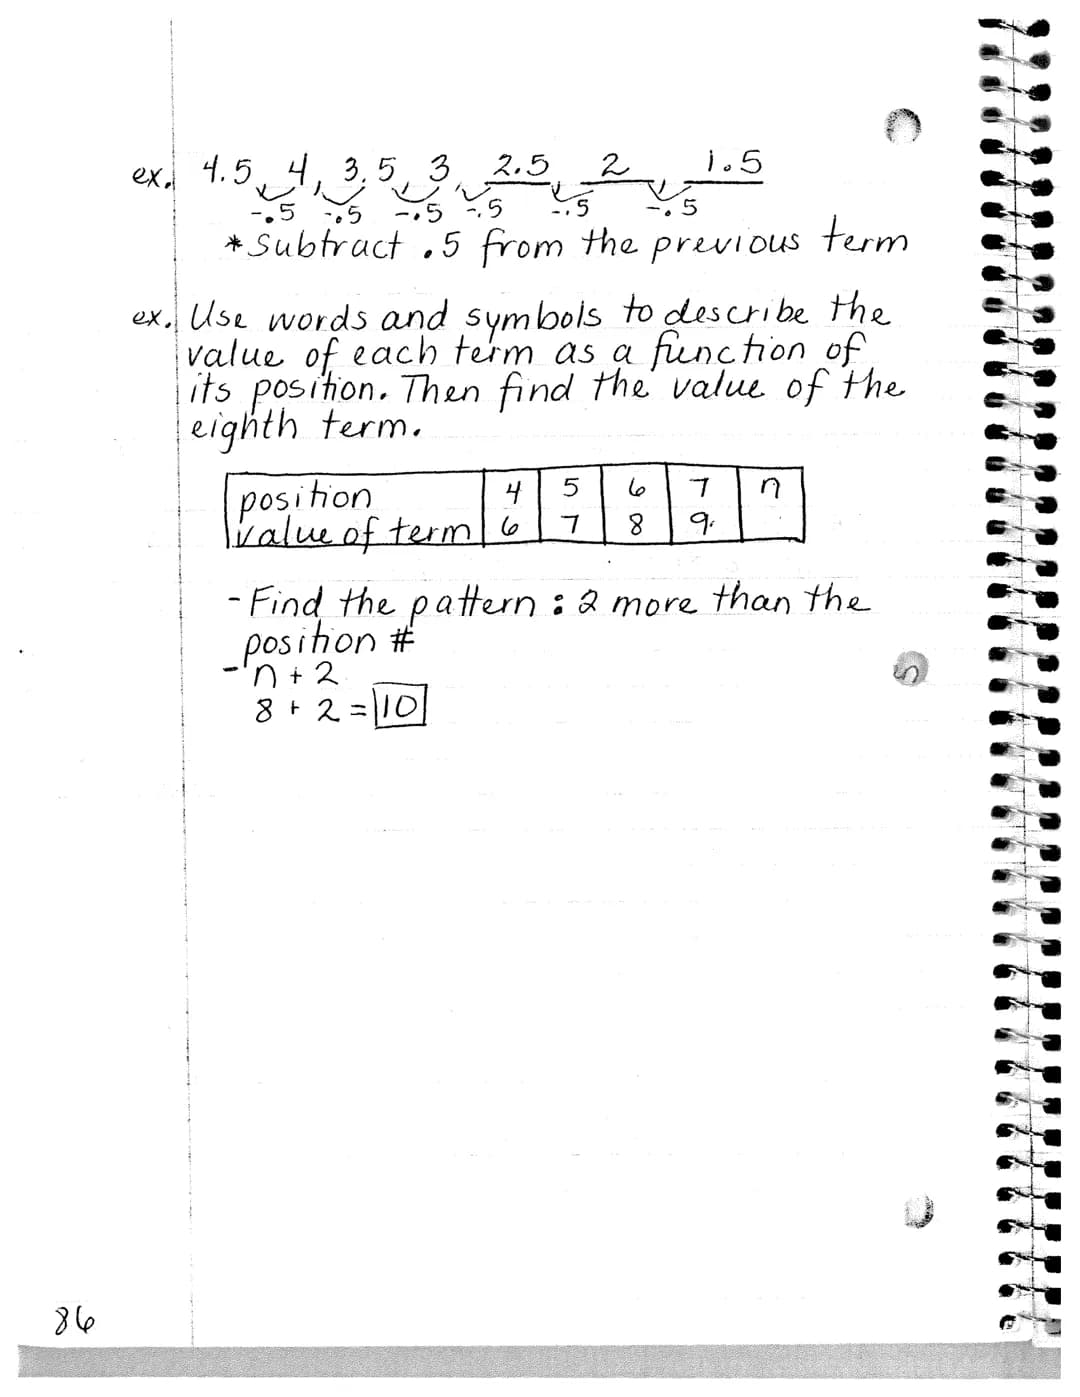 ex. 4.5, 4, 3.5, 3, 2.5, 2, 1.5
-.5 -.5 -.5 -.5 -.5 -.5
*Subtract .5 from the previous term
ex. Use words and symbols to describe the
value of each term as a function of
its position. Then find the value of the
eighth term.
position 4 5 6 7 n
value of term 6 7 8 9
- Find the pattern : 2 more than the
position #
- n + 2
8 + 2 = 10
86